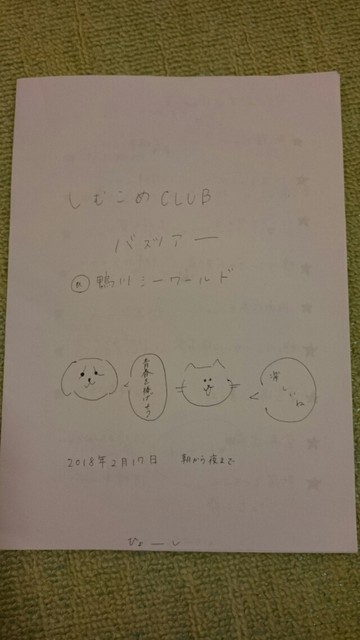 しむこめCLUB
バスツアー
in 鴨川シーワールド
青春を捧げよう
楽しいね
2018年2月17日 朝から夜まで
ひょーし